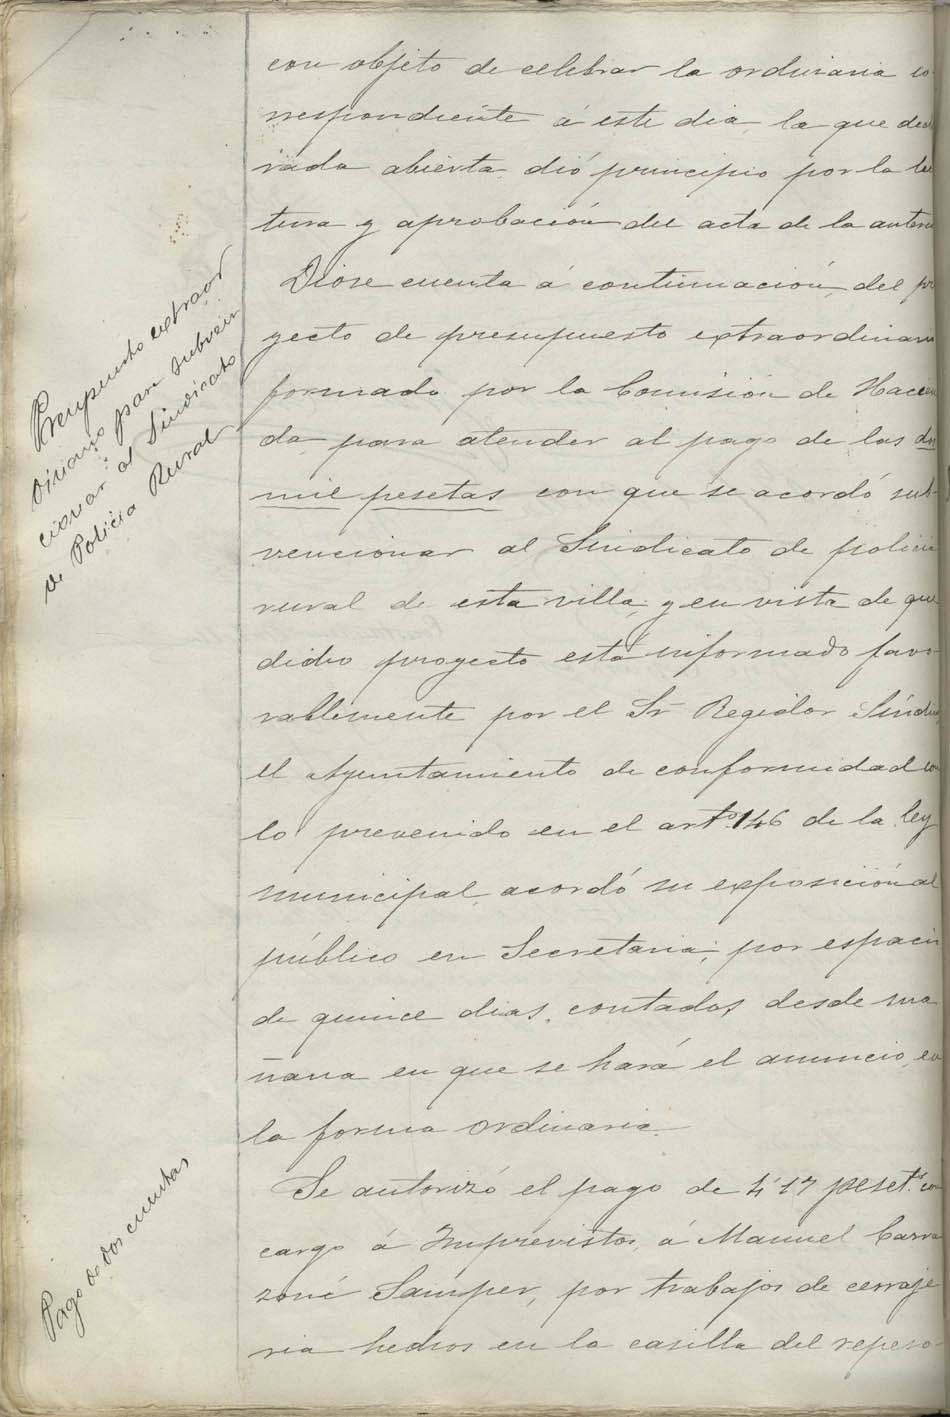 con objeto de celebrar la ordinaria co-
rrespondiente á este dia, la que decla
rada abierta, dió principio por la lec
tura y aprobación del acta de la anterior
Presupuesto extraor
dinario para subven
cionar al Sindicato
de Policía Rural
Diose cuenta á continuación, del pro
yecto de presupuesto extraordinario
formado por la Comisión de Hacien
da, para atender al pago de las dos
mil pesetas con que se acordó sub-
vencionar al Sindicato de policia
rural de esta villa; y en vista de que
dicho proyecto está informado favo-
rablemente por el Sr Regidor Síndico
el Ayuntamiento de conformidad con
lo prevenido en el artº 146 de la ley
municipal, acordó su exposición al
público en Secretaria, por espacio
de quince dias, contados desde ma
ñana en que se hará el anuncio, en
la forma ordinaria.
Pago de dos cuentas
Se autorizó el pago de 4'17 peset.s con
cargo á Imprevistos, á Manuel Carra
toni Samper, por trabajos de cerraje
ria hechos en la casilla del repeso